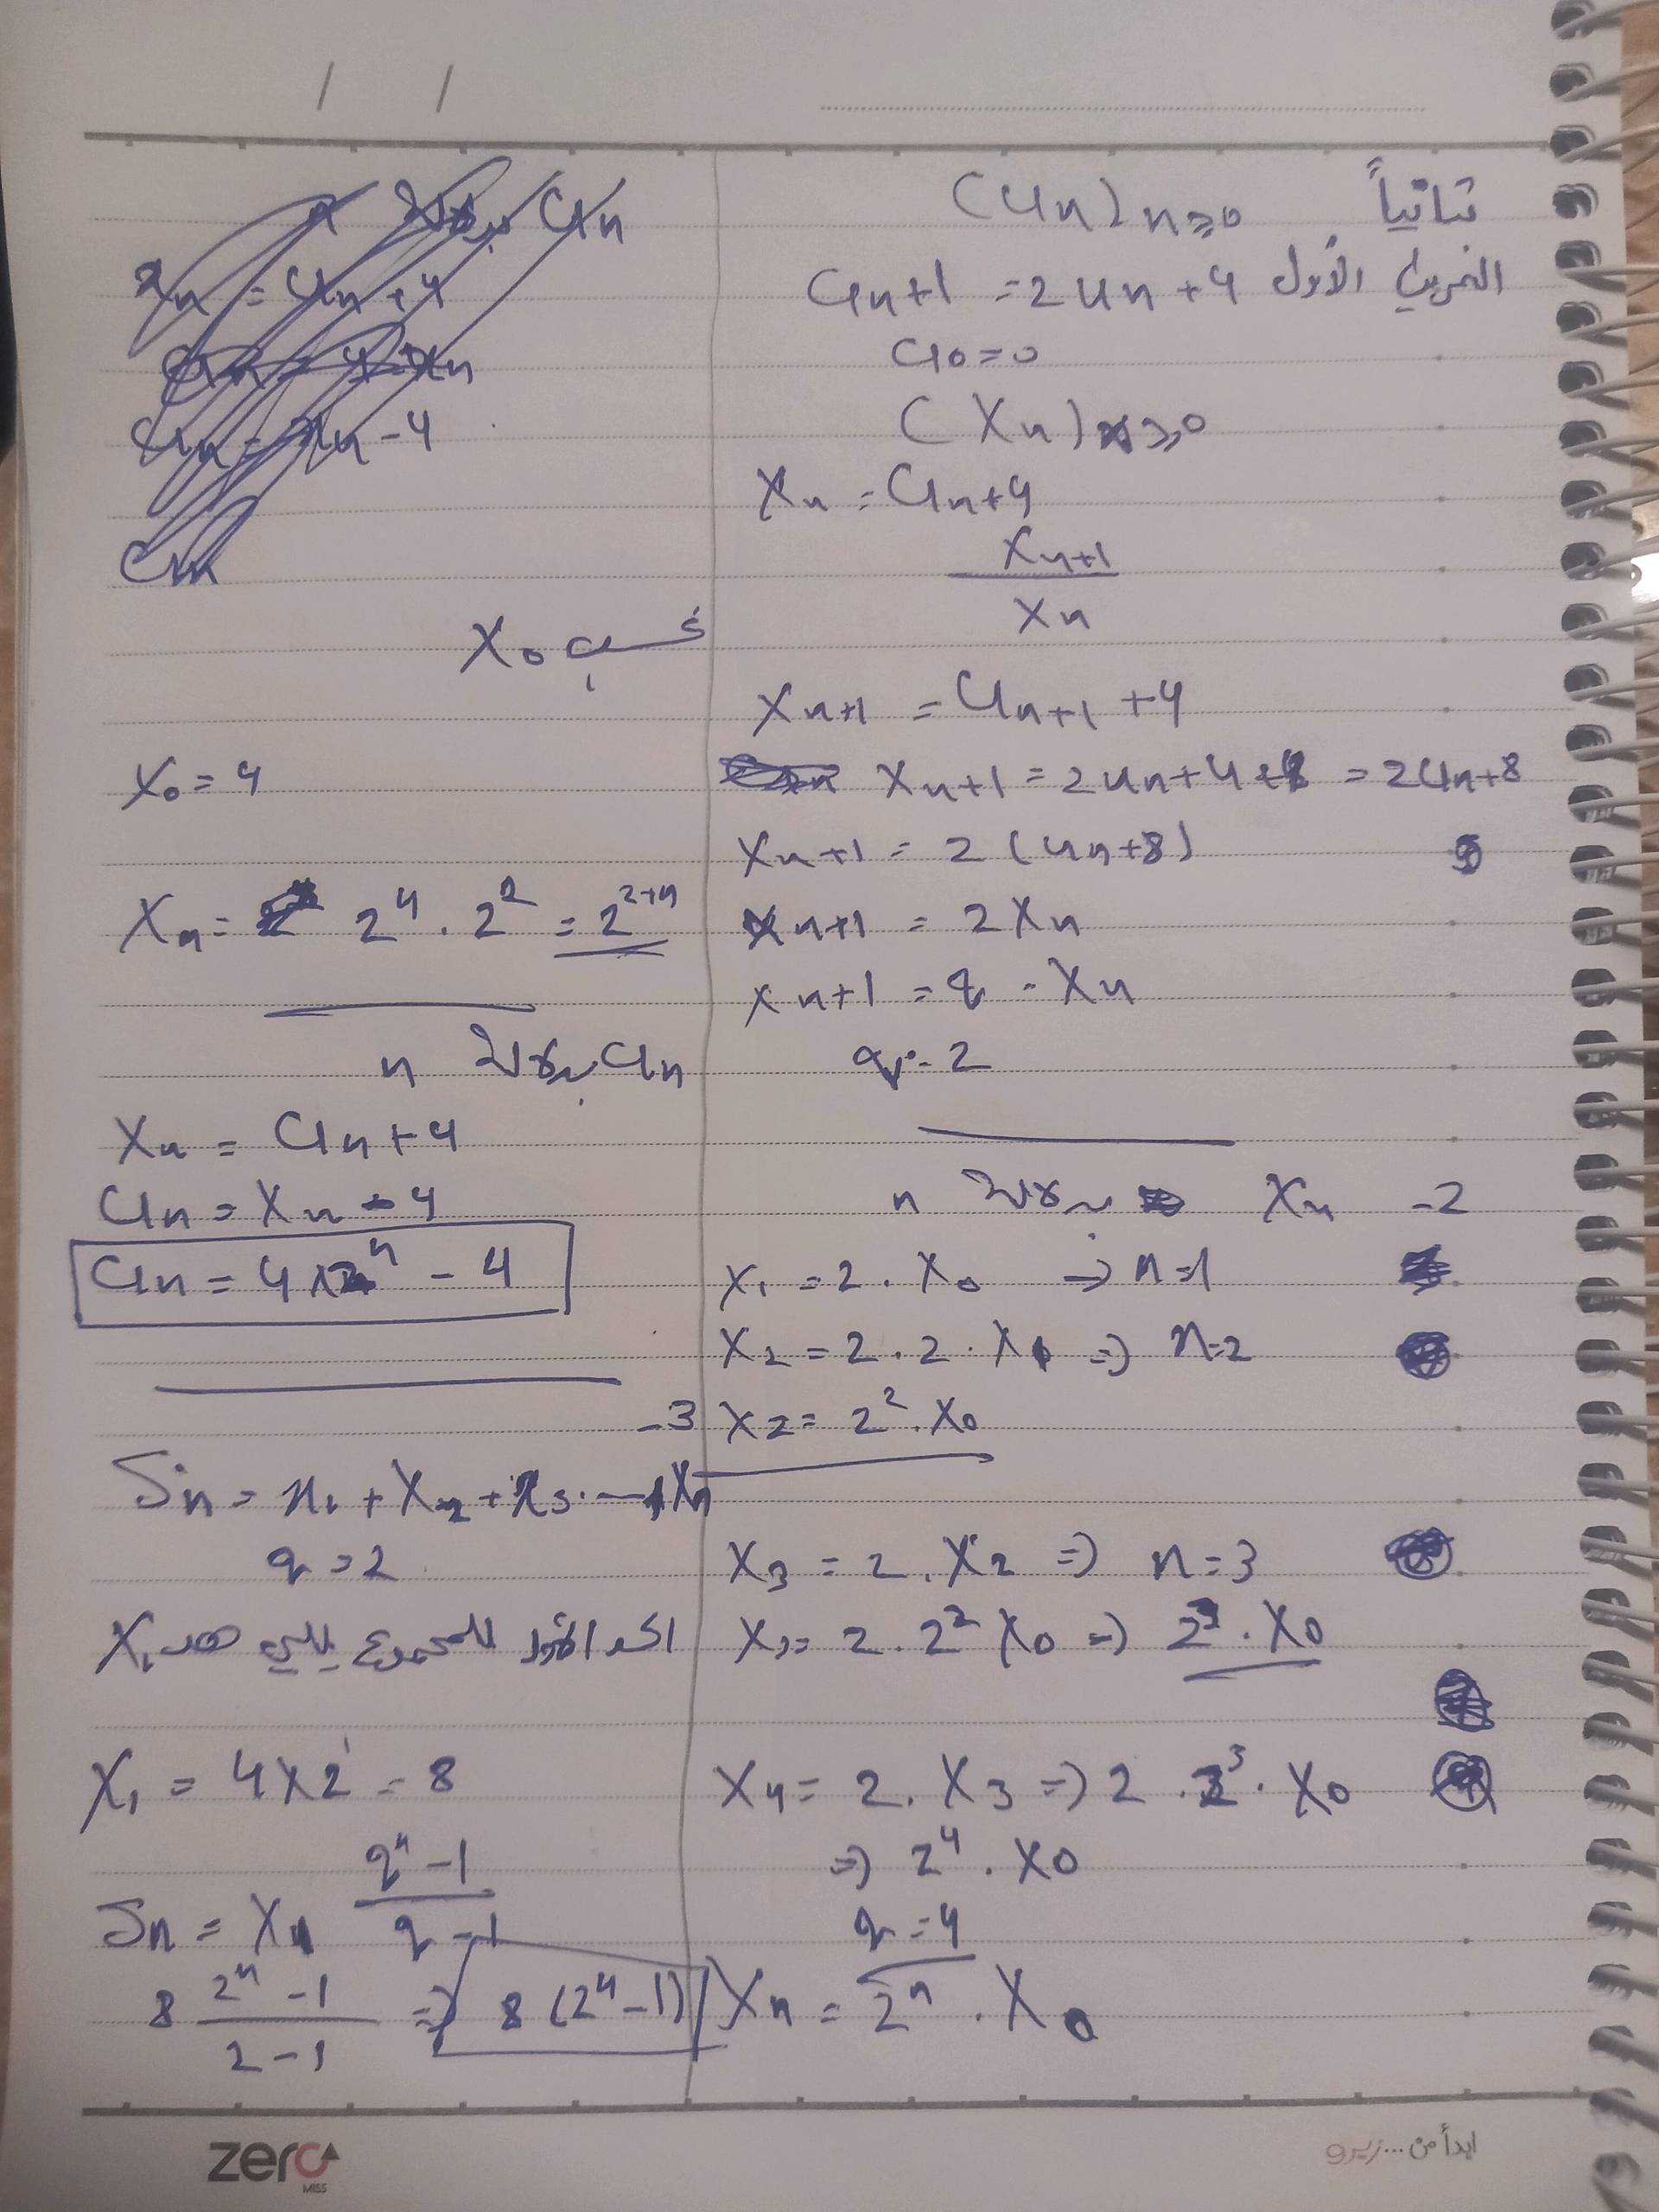 ثانياً (Un)n≥0
التمرين الأول Un+1 = 2Un+4
U0=0
(Xn)n≥0
Xn = Un+4
Xn+1
Xn
Xn+1 = Un+1 +4
Xn+1 = 2Un+4+4 = 2Un+8
Xn+1 = 2(Un+8)
Xn+1 = 2Xn
Xn+1 = q . Xn
q = 2
2- Xn بدلالة n
X1 = 2 . X0 => n=1
X2 = 2 . 2 . X0 => n=2
X2 = 2² . X0
X3 = 2 . X2 => n=3
X3 = 2 . 2² X0 => 2³ . X0
X4 = 2 . X3 => 2 . 2³ . X0
=> 2⁴ . X0
q = 4
Xn = 2ⁿ . X0
Un بدلالة
xn = Un+4
Un = xn-4
نحسب X0
X0 = 4
Xn = 2ⁿ . 2² = 2²⁺ⁿ
Un بدلالة n
Xn = Un+4
Un = Xn - 4
Un = 4×2ⁿ - 4
3-
Sn = x1 + X2 + x3 ... + Xn
q = 2
الحد الأول للمجموع يلي هو X1
X1 = 4×2¹ = 8
Sn = X1 qⁿ-1
q-1
8 2ⁿ-1 => 8(2ⁿ-1)
2-1
zero
MISS
ابدأ من ... زيرو